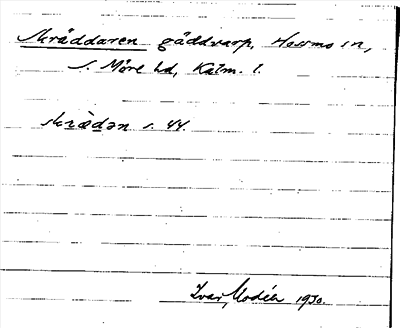 Skräddaren gäddvarp, Hossmo sn,
S. Möre hd, Kalm. l.
skrædən s. 44.
Ivar Modéer 1930.